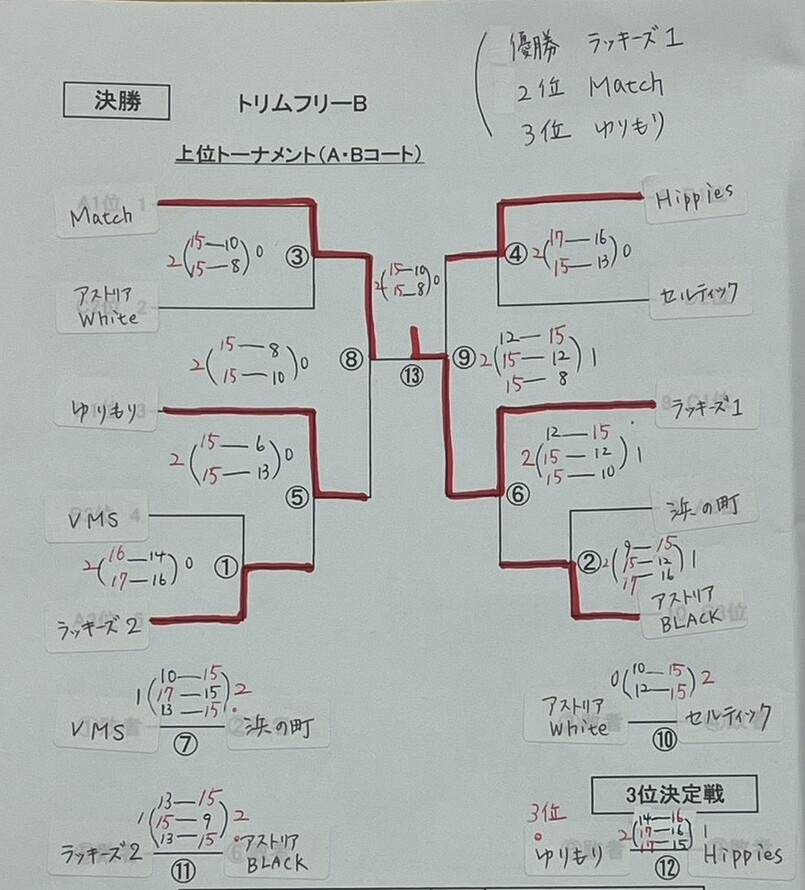 優勝 ラッキーズ1
2位 Match
3位 ゆりもり
決勝
トリムフリーB
上位トーナメント(A・Bコート)
Match
Hippies
2(15—10 15—8)0
③
2(15—10 15—8)0
④
2(17—16 15—13)0
アストリア
White
セルティック
2(15—8 15—10)0
⑧
⑬
⑨
2(12—15 15—12 15—8)1
ゆりもり
ラッキーズ1
2(15—6 15—13)0
⑤
2(12—15 15—12 15—10)1
⑥
VMS
浜の町
2(16—14 17—16)0
①
②
2(9—15 15—12 17—16)1
ラッキーズ2
アストリア
BLACK
1(10—15 17—15 13—15)2
VMS
浜の町
⑦
0(10—15 12—15)2
アストリア
White
セルティック
⑩
1(13—15 15—9 13—15)2
ラッキーズ2
アストリア
BLACK
⑪
3位決定戦
3位
2(14—16 17—16 17—15)1
ゆりもり
Hippies
⑫